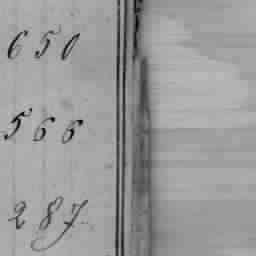 650
566
287